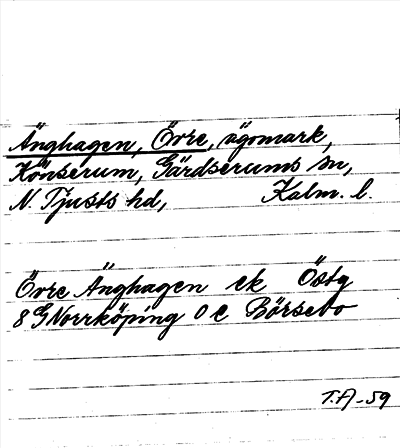 Änghagen, Övre, ägomark,
Könserum, Gärdserums sn,
N. Tjusts hd, Kalm. l.
Övre Änghagen ek Östg
8 G Norrköping 0 c Börsebo
T.A-59